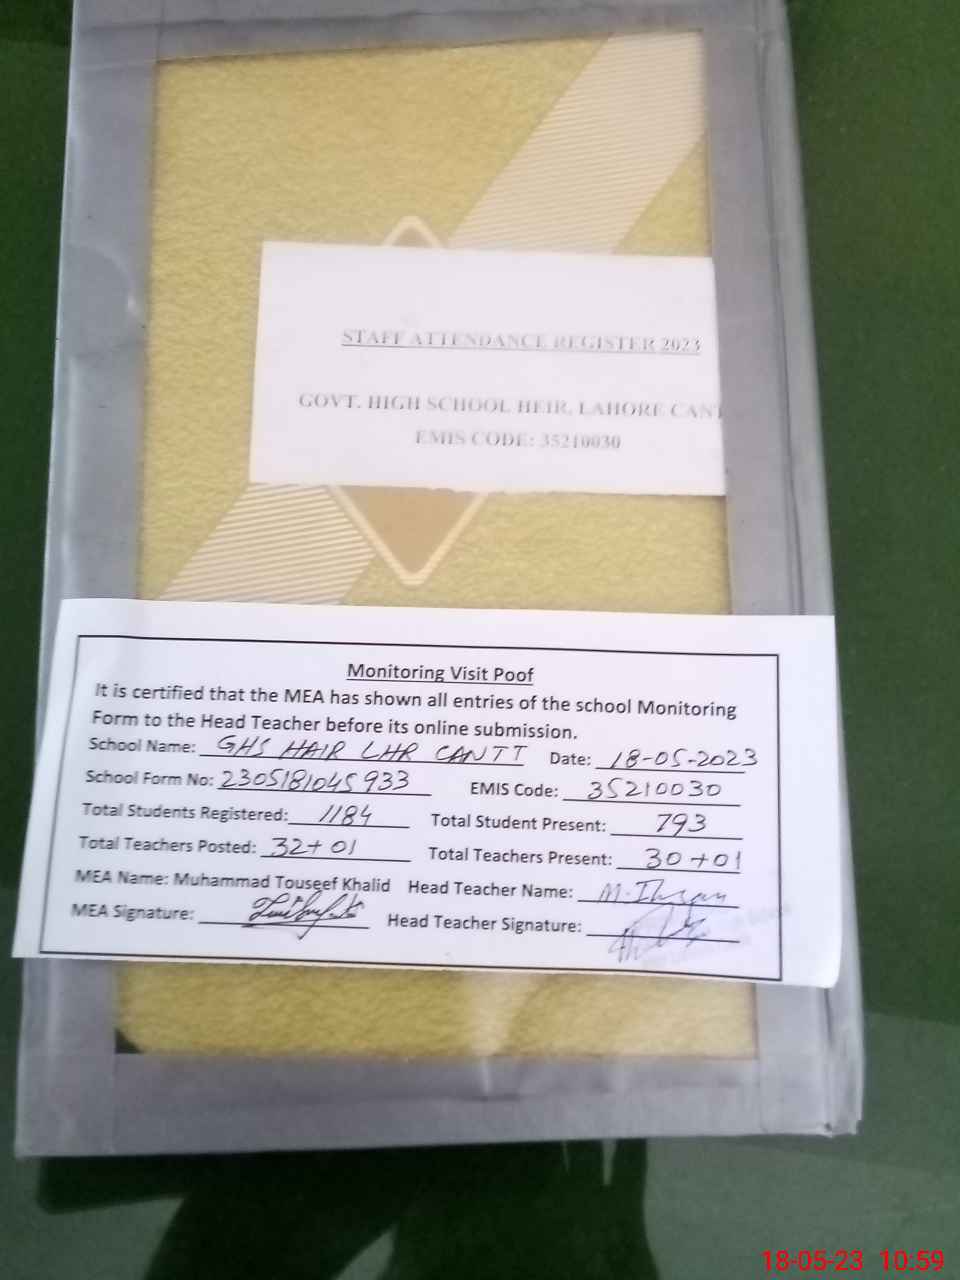 STAFF ATTENDANCE REGISTER 2023
GOVT. HIGH SCHOOL HEIR, LAHORE CANT
EMIS CODE: 35210030
Monitoring Visit Poof
It is certified that the MEA has shown all entries of the school Monitoring
Form to the Head Teacher before its online submission.
School Name: GHS HAIR LHR CANTT Date: 18-05-2023
School Form No: 2305181045933 EMIS Code: 35210030
Total Students Registered: 1184 Total Student Present: 793
Total Teachers Posted: 32+01 Total Teachers Present: 30+01
MEA Name: Muhammad Touseef Khalid Head Teacher Name: M. Ihsan
MEA Signature: Head Teacher Signature:
18-05-23 10:59